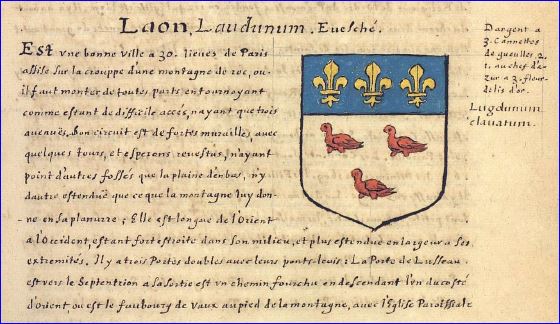 Laon, Laudunum. Euesché.
Est vne bonne ville a 30. lieues de Paris
assise sur la crouppe d'une montagne de roc, ou
il faut monter de toutes parts en tournoyant
comme estant de difficile accés, n'ayant que trois
auenuës. Son circuit est de fortes murailles, auec
quelques tours, et esperons reuestus, n'ayant
point d'autres fossés que la plaine d'enbas, n'y
d'autre estenduë que ce que la montagne luy don-
-ne en sa planure; Elle est longue de l'Orient
a l'Occident, estant fort estroite dans son milieu, et plus estendue en largeur a ses
extremités. Il y a trois Portes doubles auec leurs ponts-leuis: La Porte de Lusseau
est vers le Septentrion a sa sortie est vn chemin fourchu en descendant l'vn du costé
d'orient, ou est le faubourg de Vaux au pied de la montagne, auec l'Eglise Paroissiale
D'argent a
3. Cannettes
de gueulles 2.
1. au chef d'a-
zur a 3. fleur-
delis d'or.
Lugdunum
clauatum.